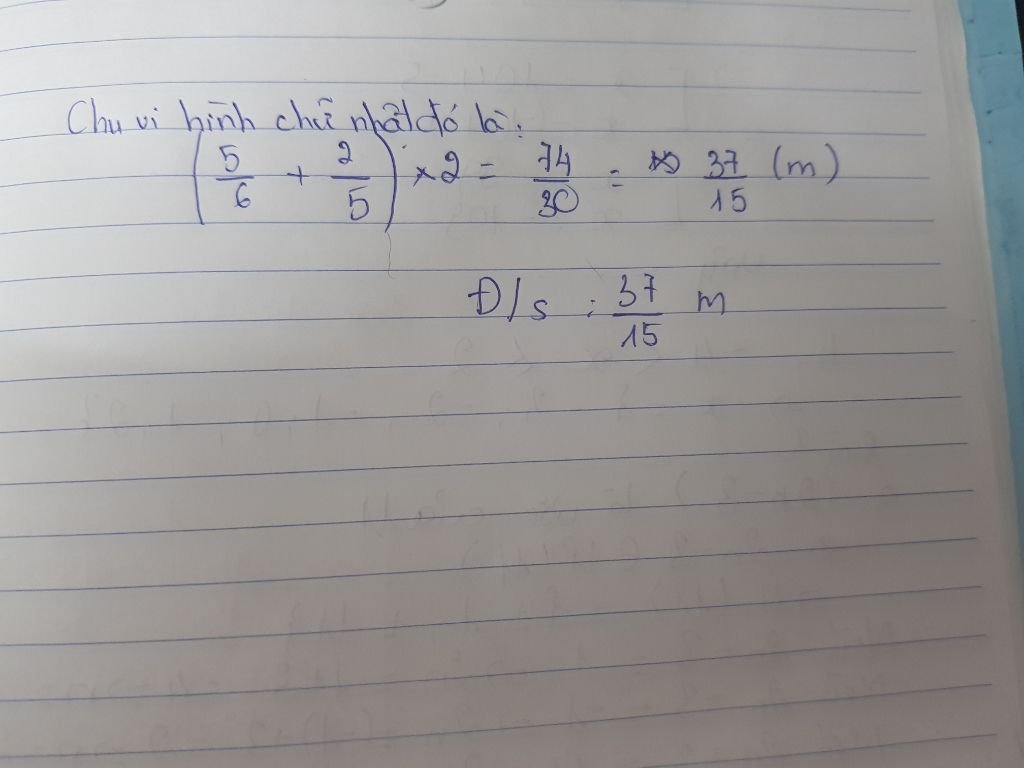 Chu vi hình chữ nhật đó là:
(5/6 + 2/5) × 2 = 74/30 = 37/15 (m)
Đ/s : 37/15 m